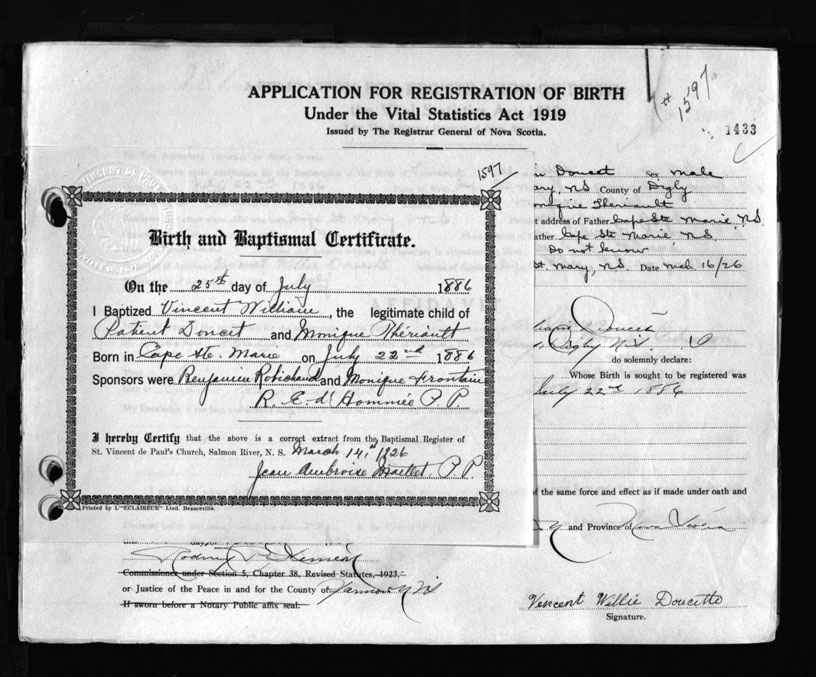 APPLICATION FOR REGISTRATION OF BIRTH
Under the Vital Statistics Act 1919
Issued by The Registrar General of Nova Scotia.
# 1597
1433
Doucet Sex male
Mary, NS County of Digby
Monique Theriault
t address of Father Cape Ste Marie, N.S.
ather Cape Ste Marie N.S.
Do not know
St. Mary, N.S. Date Mch. 16/26
1597
Birth and Baptismal Certificate.
On the 25th day of July 1886
I Baptized Vincent William, the legitimate child of
Doucet and Monique Thériault
Born in Cape Ste. Marie on July 22nd 1886
Sponsors were Benjamin Robichaud and Monique Frontain
R. E. d'Hommée P.P.
I hereby Certify that the above is a correct extract from the Baptismal Register of
St. Vincent de Paul's Church, Salmon River, N. S. March 14, 1926
Jean Ambroise Maillet, P.P.
Printed by L'"ECLAIREUR" Lted. Beauceville.
Doucet
Digby N.S.
do solemnly declare:
Whose Birth is sought to be registered was
July 22nd 1886
f the same force and effect as if made under oath and
and Province of Nova Scotia
Commissioner under Section 5, Chapter 38, Revised Statutes, 1923,
or Justice of the Peace in and for the County of Yarmouth NS
If sworn before a Notary Public affix seal.
Vencent Willie Doucette
Signature.